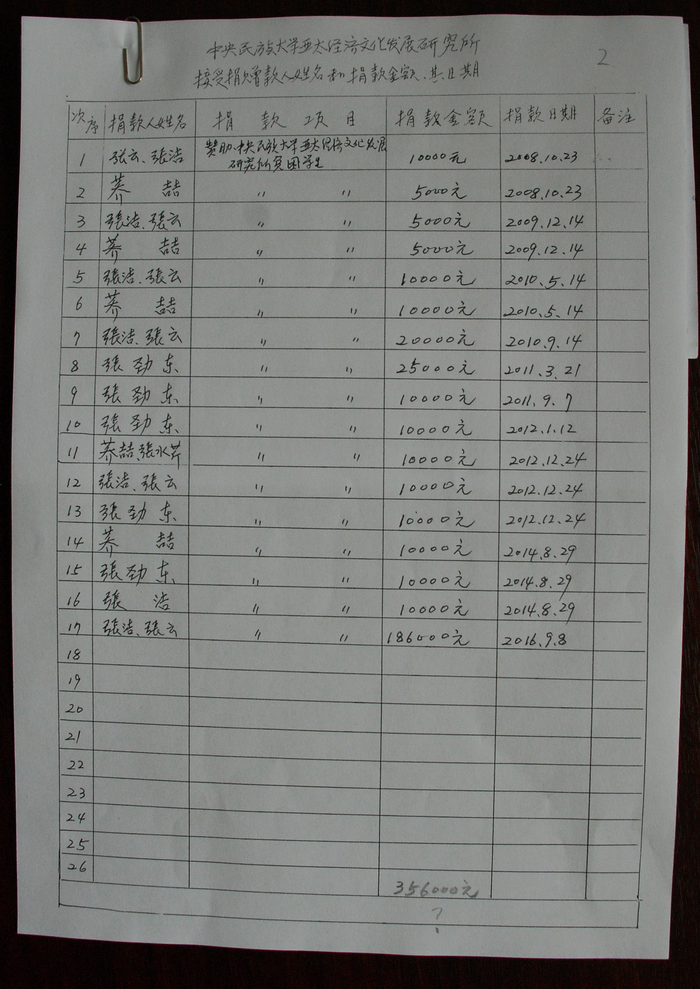 2
中央民族大学亚太经济文化发展研究所
接受捐赠款人姓名和捐款金额、其日期
次序 捐款人姓名 捐款项目 捐款金额 捐款日期 备注
1 张云、张洁 赞助、中央民族大学亚太经济文化发展研究所贫困学生 10000元 2008.10.23
2 荞喆 〃 〃 5000元 2008.10.23
3 张洁、张云 〃 〃 5000元 2009.12.14
4 荞喆 〃 〃 5000元 2009.12.14
5 张洁、张云 〃 〃 10000元 2010.5.14
6 荞喆 〃 〃 10000元 2010.5.14
7 张洁、张云 〃 〃 20000元 2010.9.14
8 张劲东 〃 〃 25000元 2011.3.21
9 张劲东 〃 〃 10000元 2011.9.7
10 张劲东 〃 〃 10000元 2012.1.12
11 荞喆、张水芹 〃 〃 10000元 2012.12.24
12 张洁、张云 〃 〃 10000元 2012.12.24
13 张劲东 〃 〃 10000元 2012.12.24
14 荞喆 〃 〃 10000元 2014.8.29
15 张劲东 〃 〃 10000元 2014.8.29
16 张洁 〃 〃 10000元 2014.8.29
17 张洁、张云 〃 〃 186000元 2016.9.8
18
19
20
21
22
23
24
25
26
356000元
?